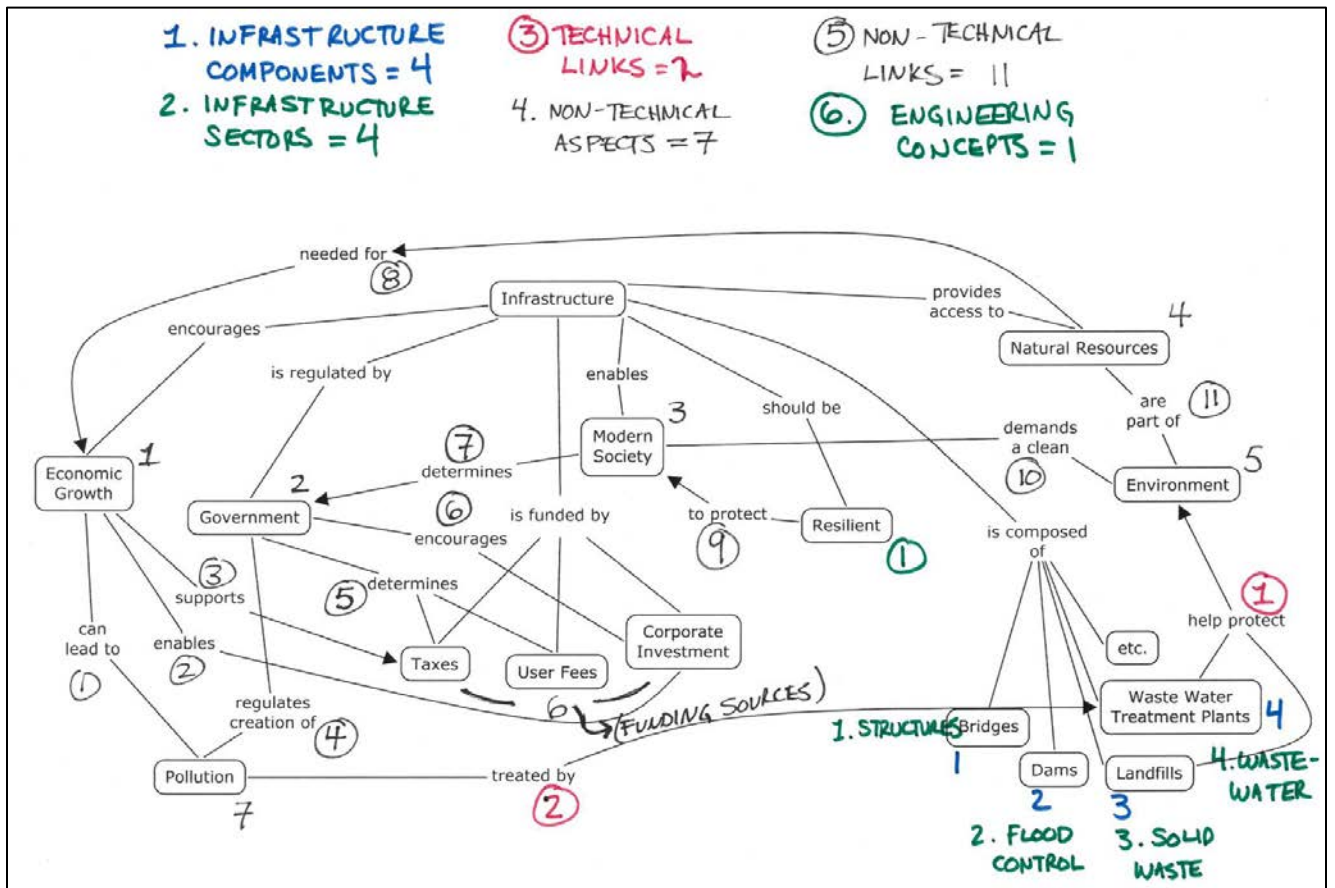 1. INFRASTRUCTURE
COMPONENTS = 4
2. INFRASTRUCTURE
SECTORS = 4
③ TECHNICAL
LINKS = 2
4. NON-TECHNICAL
ASPECTS = 7
⑤ NON-TECHNICAL
LINKS = 11
⑥. ENGINEERING
CONCEPTS = 1
needed for
⑧
Infrastructure
provides
access to
4
Natural Resources
encourages
is regulated by
enables
should be
are
part of
⑪
3
Modern
Society
demands
a clean
⑩
5
Environment
1
Economic
Growth
⑦
determines
2
Government
⑥
encourages
is funded by
to protect
⑨
Resilient
①
is composed
of
③
supports
⑤
determines
can
lead to
①
enables
②
Taxes
User Fees
Corporate
Investment
6
(FUNDING SOURCES)
①
help protect
etc.
regulates
creation of
④
Waste Water
Treatment Plants
4
1. STRUCTURES
Bridges
1
Pollution
7
treated by
②
Dams
2
Landfills
3
4. WASTE-
WATER
2. FLOOD
CONTROL
3. SOLID
WASTE